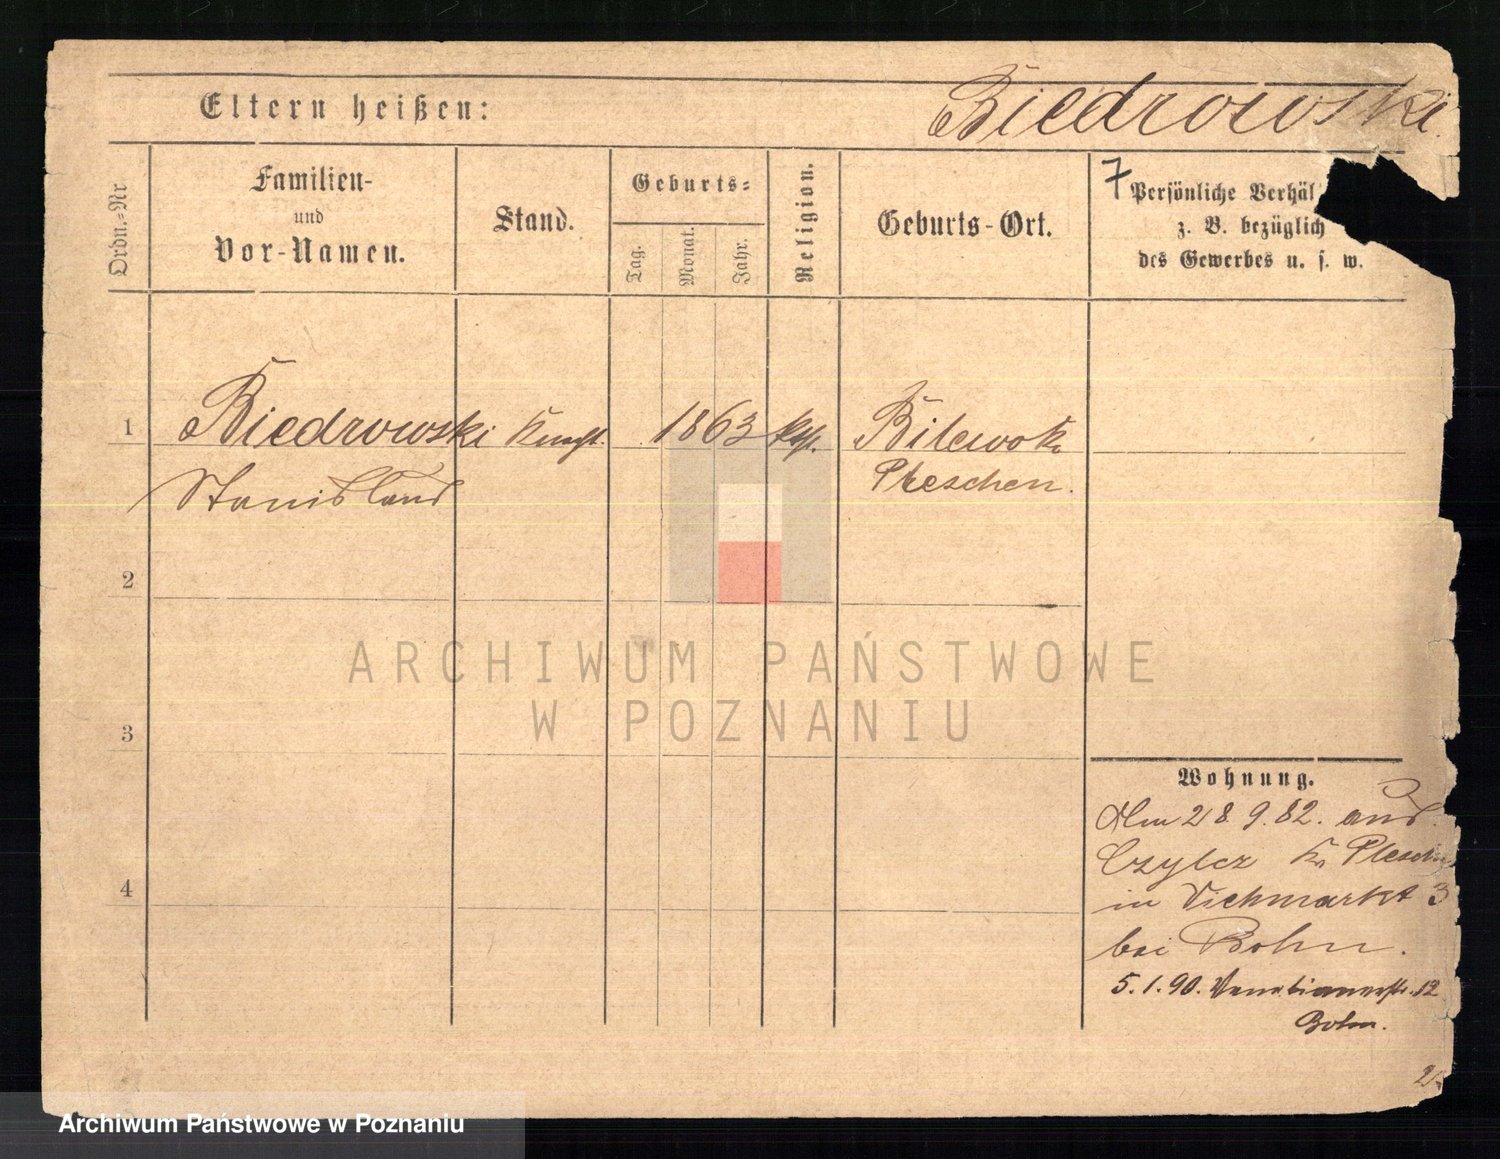 Eltern heißen:
Biedrowski.
Ordn.=Nr
Familien-
und
Vor-Namen.
Stand.
Geburts=
Tag.
Monat.
Jahr.
Religion.
Geburts-Ort.
7
Persönliche Verhäl
z. B. bezüglich
des Gewerbes u. s. w.
1
Biedrowski
1863
kth.
Bilewok
Stanislaus
Pleschen.
2
ARCHIWUM PAŃSTWOWE
W POZNANIU
3
Wohnung.
Am 28.9.82. aus
Kr Plesch
4
in Viehmarkt 3
bei Bohn.
5.1.90. Venetianerstr. 12
Bohn.
Archiwum Państwowe w Poznaniu